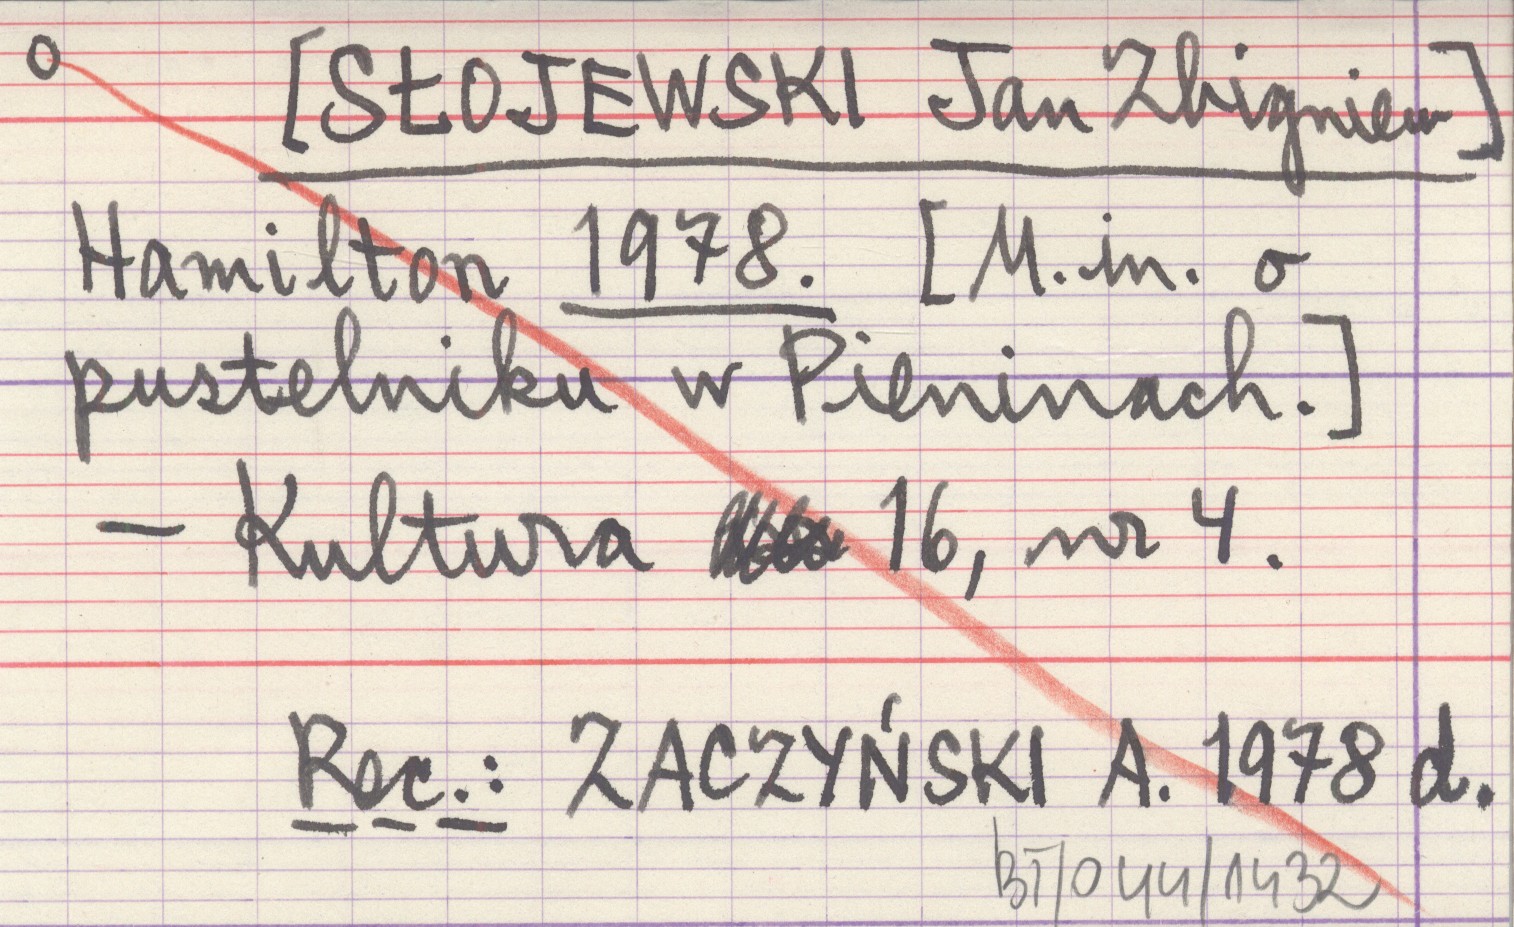 o [SŁOJEWSKI Jan Zbigniew]
Hamilton 1978. [M.in. o
pustelniku w Pieninach.]
— Kultura 16, nr 4.
Rec.: ZACZYŃSKI A. 1978 d.
BT/044/1432